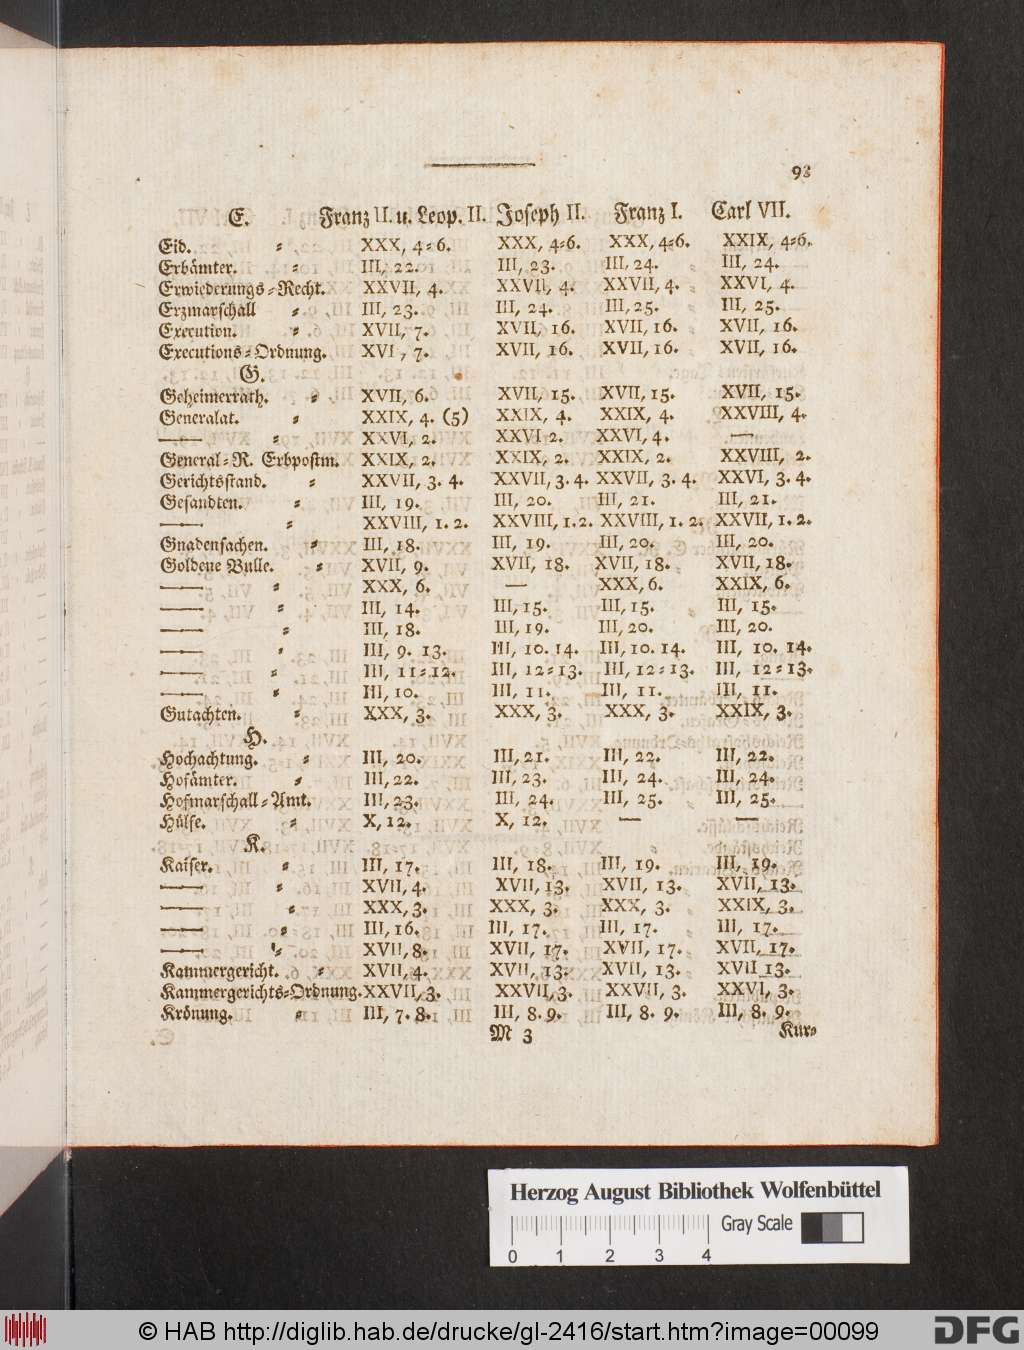 93
E. Franz II. u. Leop. II. Joseph II. Franz I. Carl VII.
Eid. ⸗ XXX, 4⸗6. XXX, 4⸗6. XXX, 4⸗6. XXIX, 4⸗6.
Erbämter. ⸗ III, 22. III, 23. III, 24. III, 24.
Erwiederungs⸗Recht. XXVII, 4. XXVII, 4. XXVII, 4. XXVI, 4.
Erzmarschall ⸗ III, 23. III, 24. III, 25. III, 25.
Execution. ⸗ XVII, 7. XVII, 16. XVII, 16. XVII, 16.
Executions⸗Ordnung. XVI , 7. XVII, 16. XVII, 16. XVII, 16.
G.
Geheimerrath. ⸗ XVII, 6. XVII, 15. XVII, 15. XVII, 15.
Generalat. ⸗ XXIX, 4. (5) XXIX, 4. XXIX, 4. XXVIII, 4.
— ⸗ XXVI, 2. XXVI 2. XXVI, 4. —
General⸗R. Erbpostm. XXIX, 2. XXIX, 2. XXIX, 2. XXVIII, 2.
Gerichtsstand. ⸗ XXVII, 3. 4. XXVII, 3. 4. XXVII, 3. 4. XXVI, 3. 4.
Gesandten. ⸗ III, 19. III, 20. III, 21. III, 21.
— ⸗ XXVIII, 1. 2. XXVIII, 1. 2. XXVIII, 1. 2. XXVII, 1. 2.
Gnadensachen. ⸗ III, 18. III, 19. III, 20. III, 20.
Goldene Bulle. ⸗ XVII, 9. XVII, 18. XVII, 18. XVII, 18.
— ⸗ XXX, 6. — XXX, 6. XXIX, 6.
— ⸗ III, 14. III, 15. III, 15. III, 15.
— ⸗ III, 18. III, 19. III, 20. III, 20.
— ⸗ III, 9. 13. III, 10. 14. III, 10. 14. III, 10. 14.
— ⸗ III, 11⸗12. III, 12⸗13. III, 12⸗13. III, 12⸗13.
— ⸗ III, 10. III, 11. III, 11. III, 11.
Gutachten. ⸗ XXX, 3. XXX, 3. XXX, 3. XXIX, 3.
H.
Hochachtung. ⸗ III, 20. III, 21. III, 22. III, 22.
Hofämter. ⸗ III, 22. III, 23. III, 24. III, 24.
Hofmarschall⸗Amt. III, 23. III, 24. III, 25. III, 25.
Hülfe. ⸗ X, 12. X, 12. — —
K.
Kaiser. ⸗ III, 17. III, 18. III, 19. III, 19.
— ⸗ XVII, 4. XVII, 13. XVII, 13. XVII, 13.
— ⸗ XXX, 3. XXX, 3. XXX, 3. XXIX, 3.
— ⸗ III, 16. III, 17. III, 17. III, 17.
— ⸗ XVII, 8. XVII, 17. XVII, 17. XVII, 17.
Kammergericht. ⸗ XVII, 4. XVII, 13. XVII, 13. XVII 13.
Kammergerichts⸗Ordnung. XXVII, 3. XXVII, 3. XXVII, 3. XXVI, 3.
Krönung. ⸗ III, 7. 8. III, 8. 9. III, 8. 9. III, 8. 9.
M 3 Kur⸗
Herzog August Bibliothek Wolfenbüttel
Gray Scale
0 1 2 3 4
© HAB http://diglib.hab.de/drucke/gl-2416/start.htm?image=00099
DFG